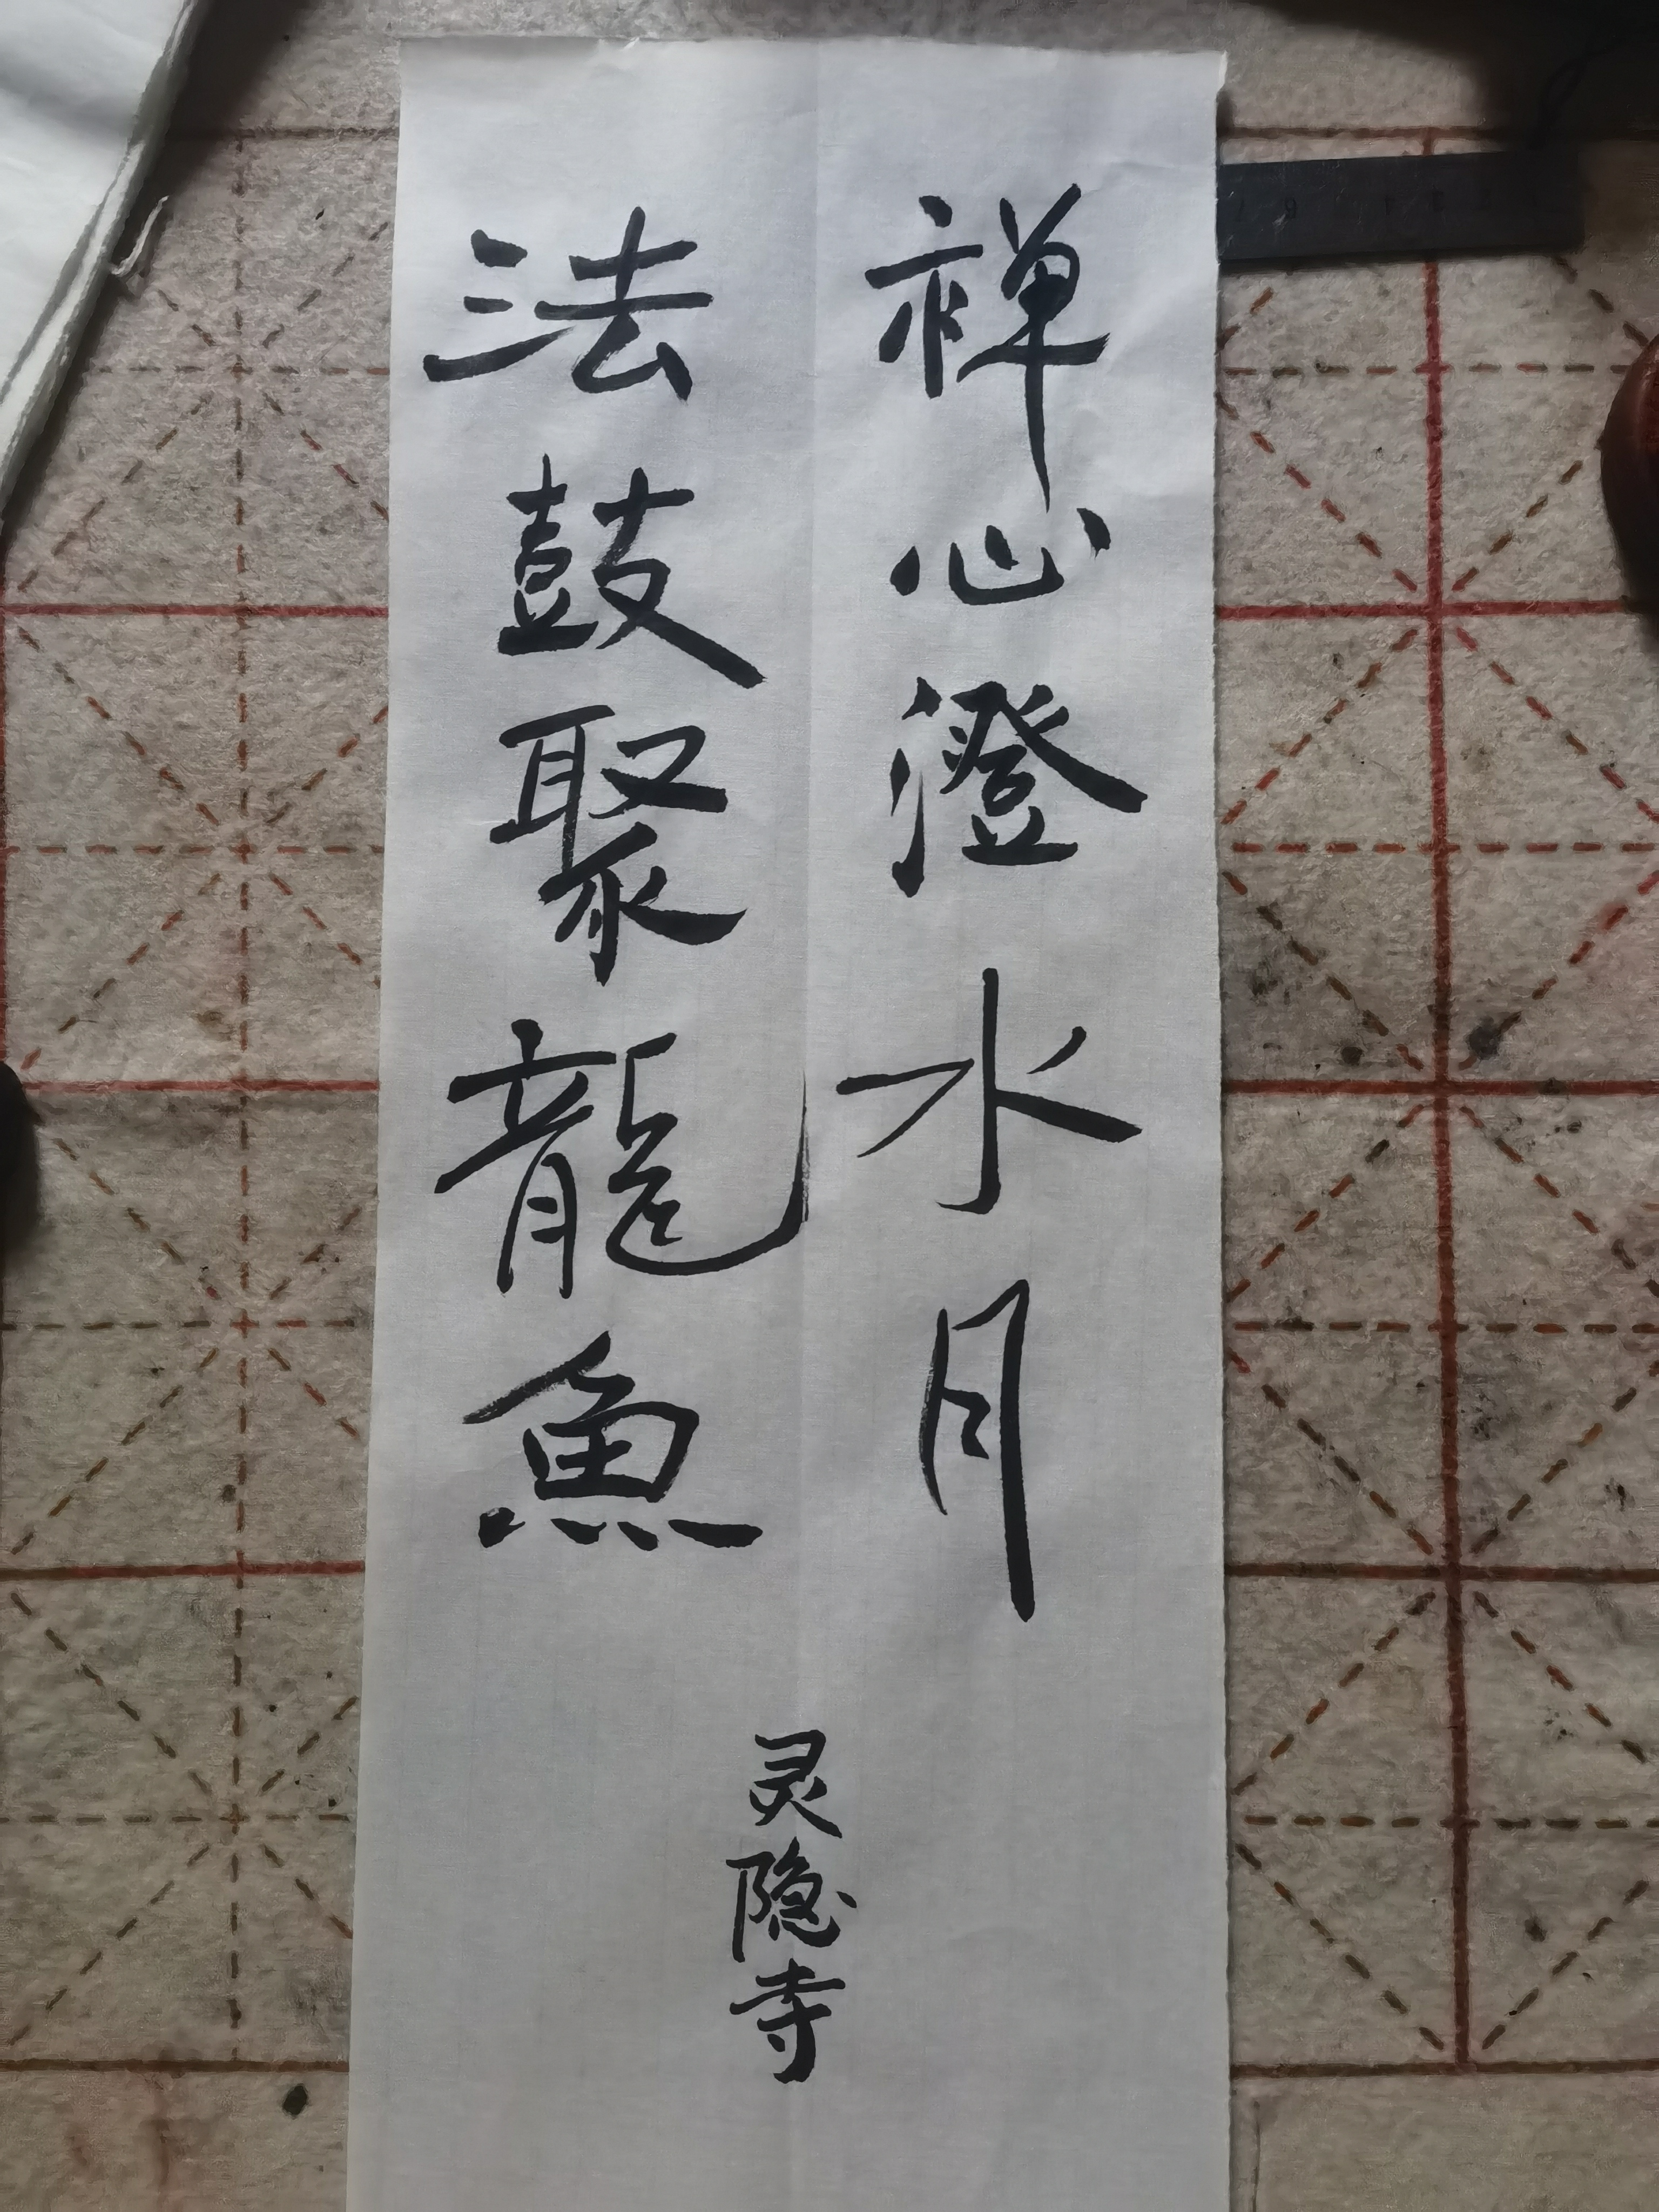 禅心澄水月
法鼓聚龍魚
灵隐寺